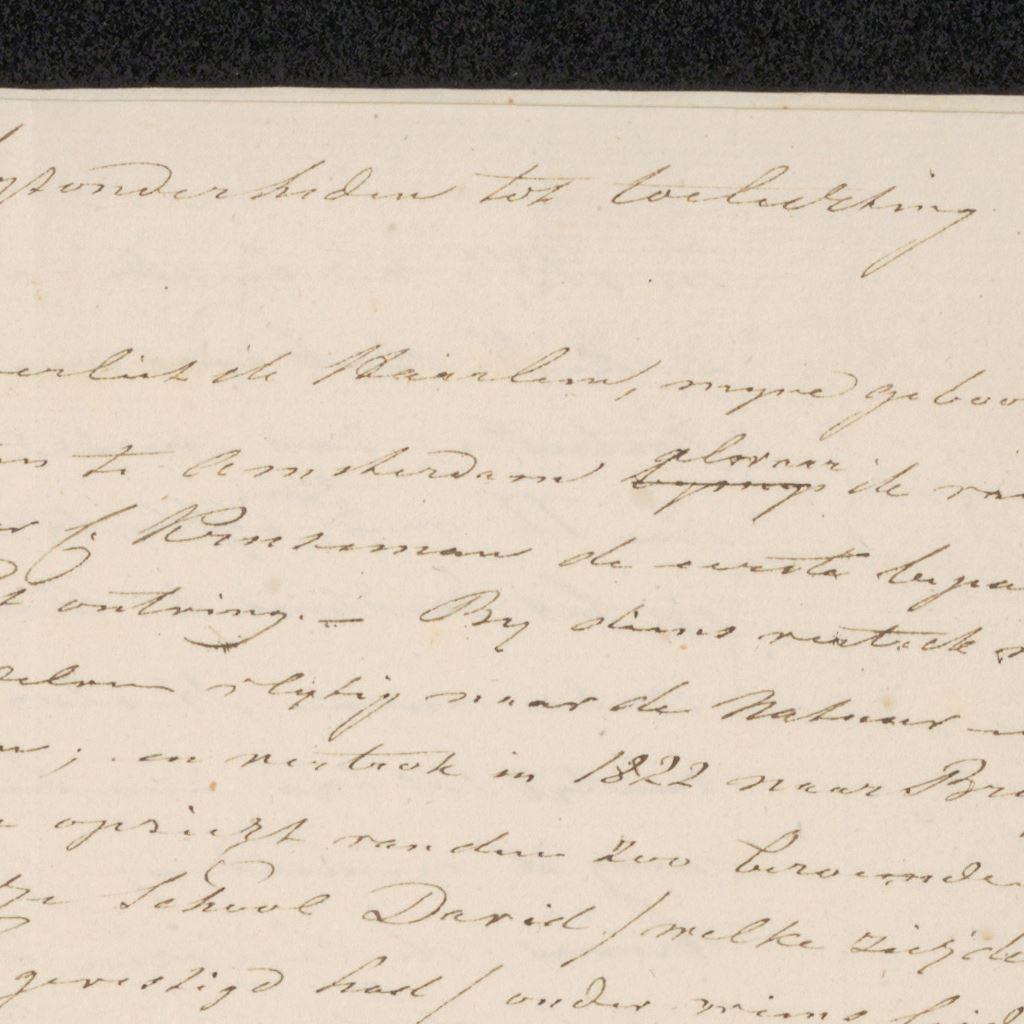 yzonderheden tot toelichting
verliet ik Haarlem, myne geboo
te Amsterdam alwaar ik va
C. Kruseman de eerste bepa
ontving. — By diens vertrek
vlytig naar de Natuur
; en vertrok in 1822 naar Bru
opzigt van den zoo beroemde
School David / welke zich de
gevestigd had / onder wiens